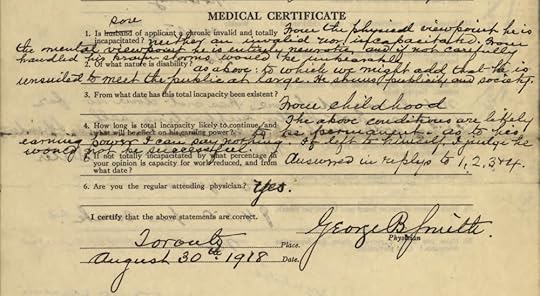 MEDICAL CERTIFICATE
son
1. Is husband of applicant a chronic invalid and totally incapacitated? From the physical viewpoint he is
neither an invalid nor incapacitated. From
the mental viewpoint he is entirely neurotic and if not carefully
handled his brain storms would be unbearable
2. Of what nature is disability? as above: to which we might add that he is
unsuited to meet the public at large. He shuns publicity and society.
3. From what date has this total incapacity been existent?
From childhood
4. How long is total incapacity likely to continue, and The above conditions are likely
what will be effect on his earning power? to be permanent. as to his
earning power I can say nothing. If left to himself, I judge he
would not be successful.
5. If not totally incapacitated by what percentage in
your opinion is capacity for work reduced, and from Answered in replys to 1, 2, 3 & 4.
what date?
6. Are you the regular attending physician? Yes.
I certify that the above statements are correct.
George B Smith.
Physician
Toronto Place.
August 30th 1918 Date.